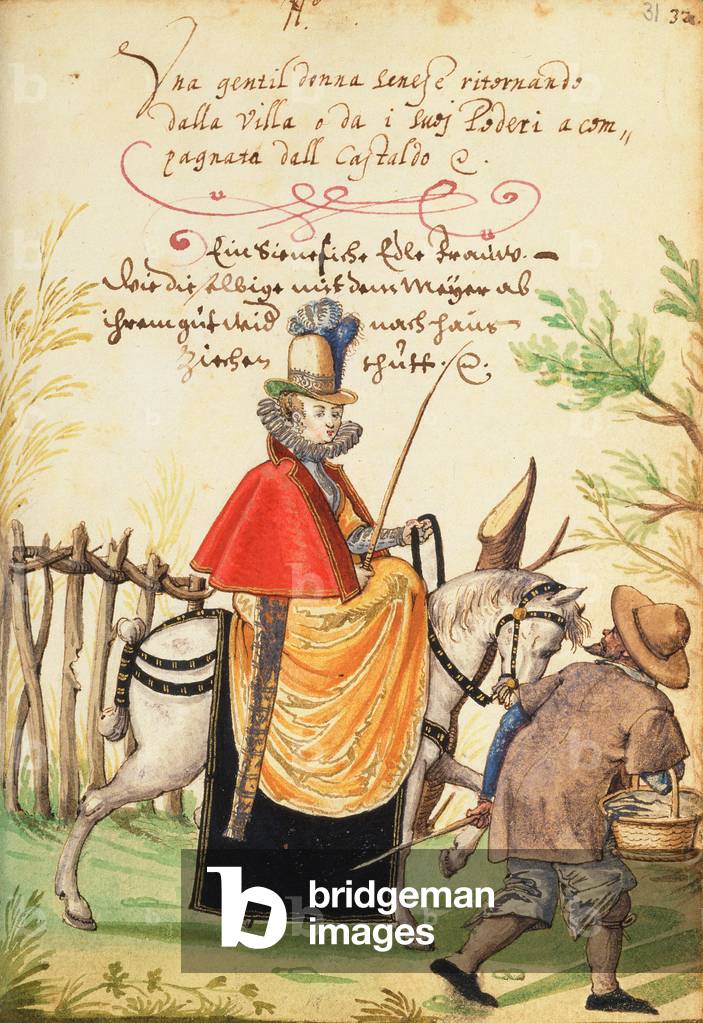 31 32
Una gentil donna senese ritornando
dalla Villa o da i suoj Poderi a com„
pagnata dall Castaldo
Ein Sienesiche Edle Frauw.
Wie die selbige mit dem Meyer ab
ihrem gut wid nach haus
Ziechen thutt.
b bridgeman
images